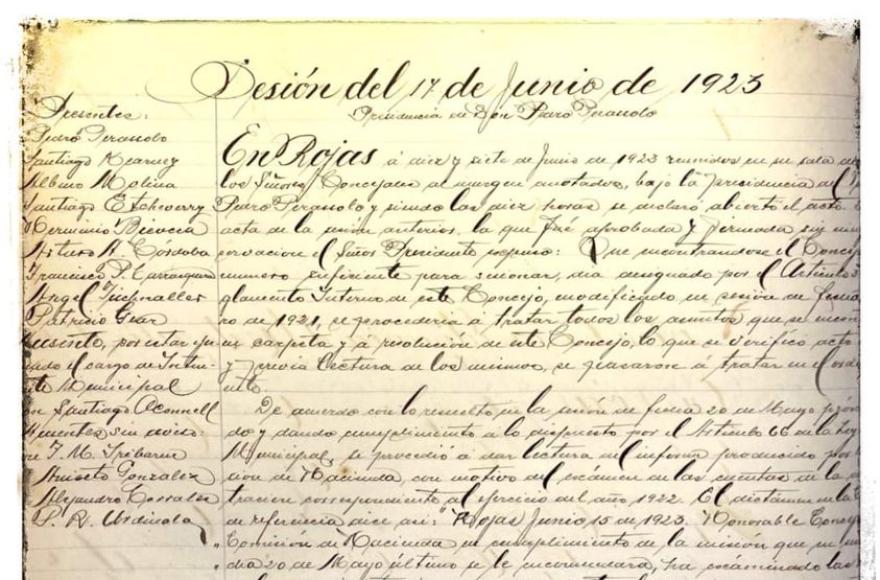 Sesión del 17 de Junio de 1923
Presidencia de Don Pedro Perassolo
Presentes:
Pedro Perassolo
Santiago Kearney
Albino Molina
Santiago Etcheverry
Herminio
Arturo A. Córdoba
Francisco P.
Angel
Patricio
por estar
el cargo de Inten-
te Municipal
Santiago Oconnell
sin aviso:
J. M. Iribarne
Aniseto Gonzalez
Alejandro
P. R. Urdizola
En Rojas á diez y siete de Junio de 1923 reunidos en su sala
los Señores Concejales al margen anotados, bajo la Presidencia del
Pedro Perassolo y siendo las diez horas se declaró abierto el acto.
acta de la sesión anterior, la que fué aprobada y firmada sin
servacion el Señor Presidente expuso: Que encontrandose el
numero suficiente para sesionar, dia designado por el Articulo
glamento Interno de este Concejo, modificado en sesión de
ro de 1921, se procederia á tratar todos los asuntos que se
en carpeta y á resolucion de este Concejo, lo que se verificó acto
y previa lectura de los mismos, se pasaron á tratar en el
De acuerdo con lo resuelto en la sesión de fecha 20 de Mayo
do y dando cumplimiento a lo dispuesto por el Articulo 66 de la Ley
Municipal, se procedió a dar lectura del informe producido por
sion de Hacienda, con motivo del exámen de las cuentas de la
tracion correspondiente al ejercicio del año 1922. El dictámen de la
de referencia dice asi: "Rojas Junio 15 de 1923. Honorable
"Comisión de Hacienda en cumplimiento de la misión que
"dia 20 de Mayo último se le encomendara, ha examinado las